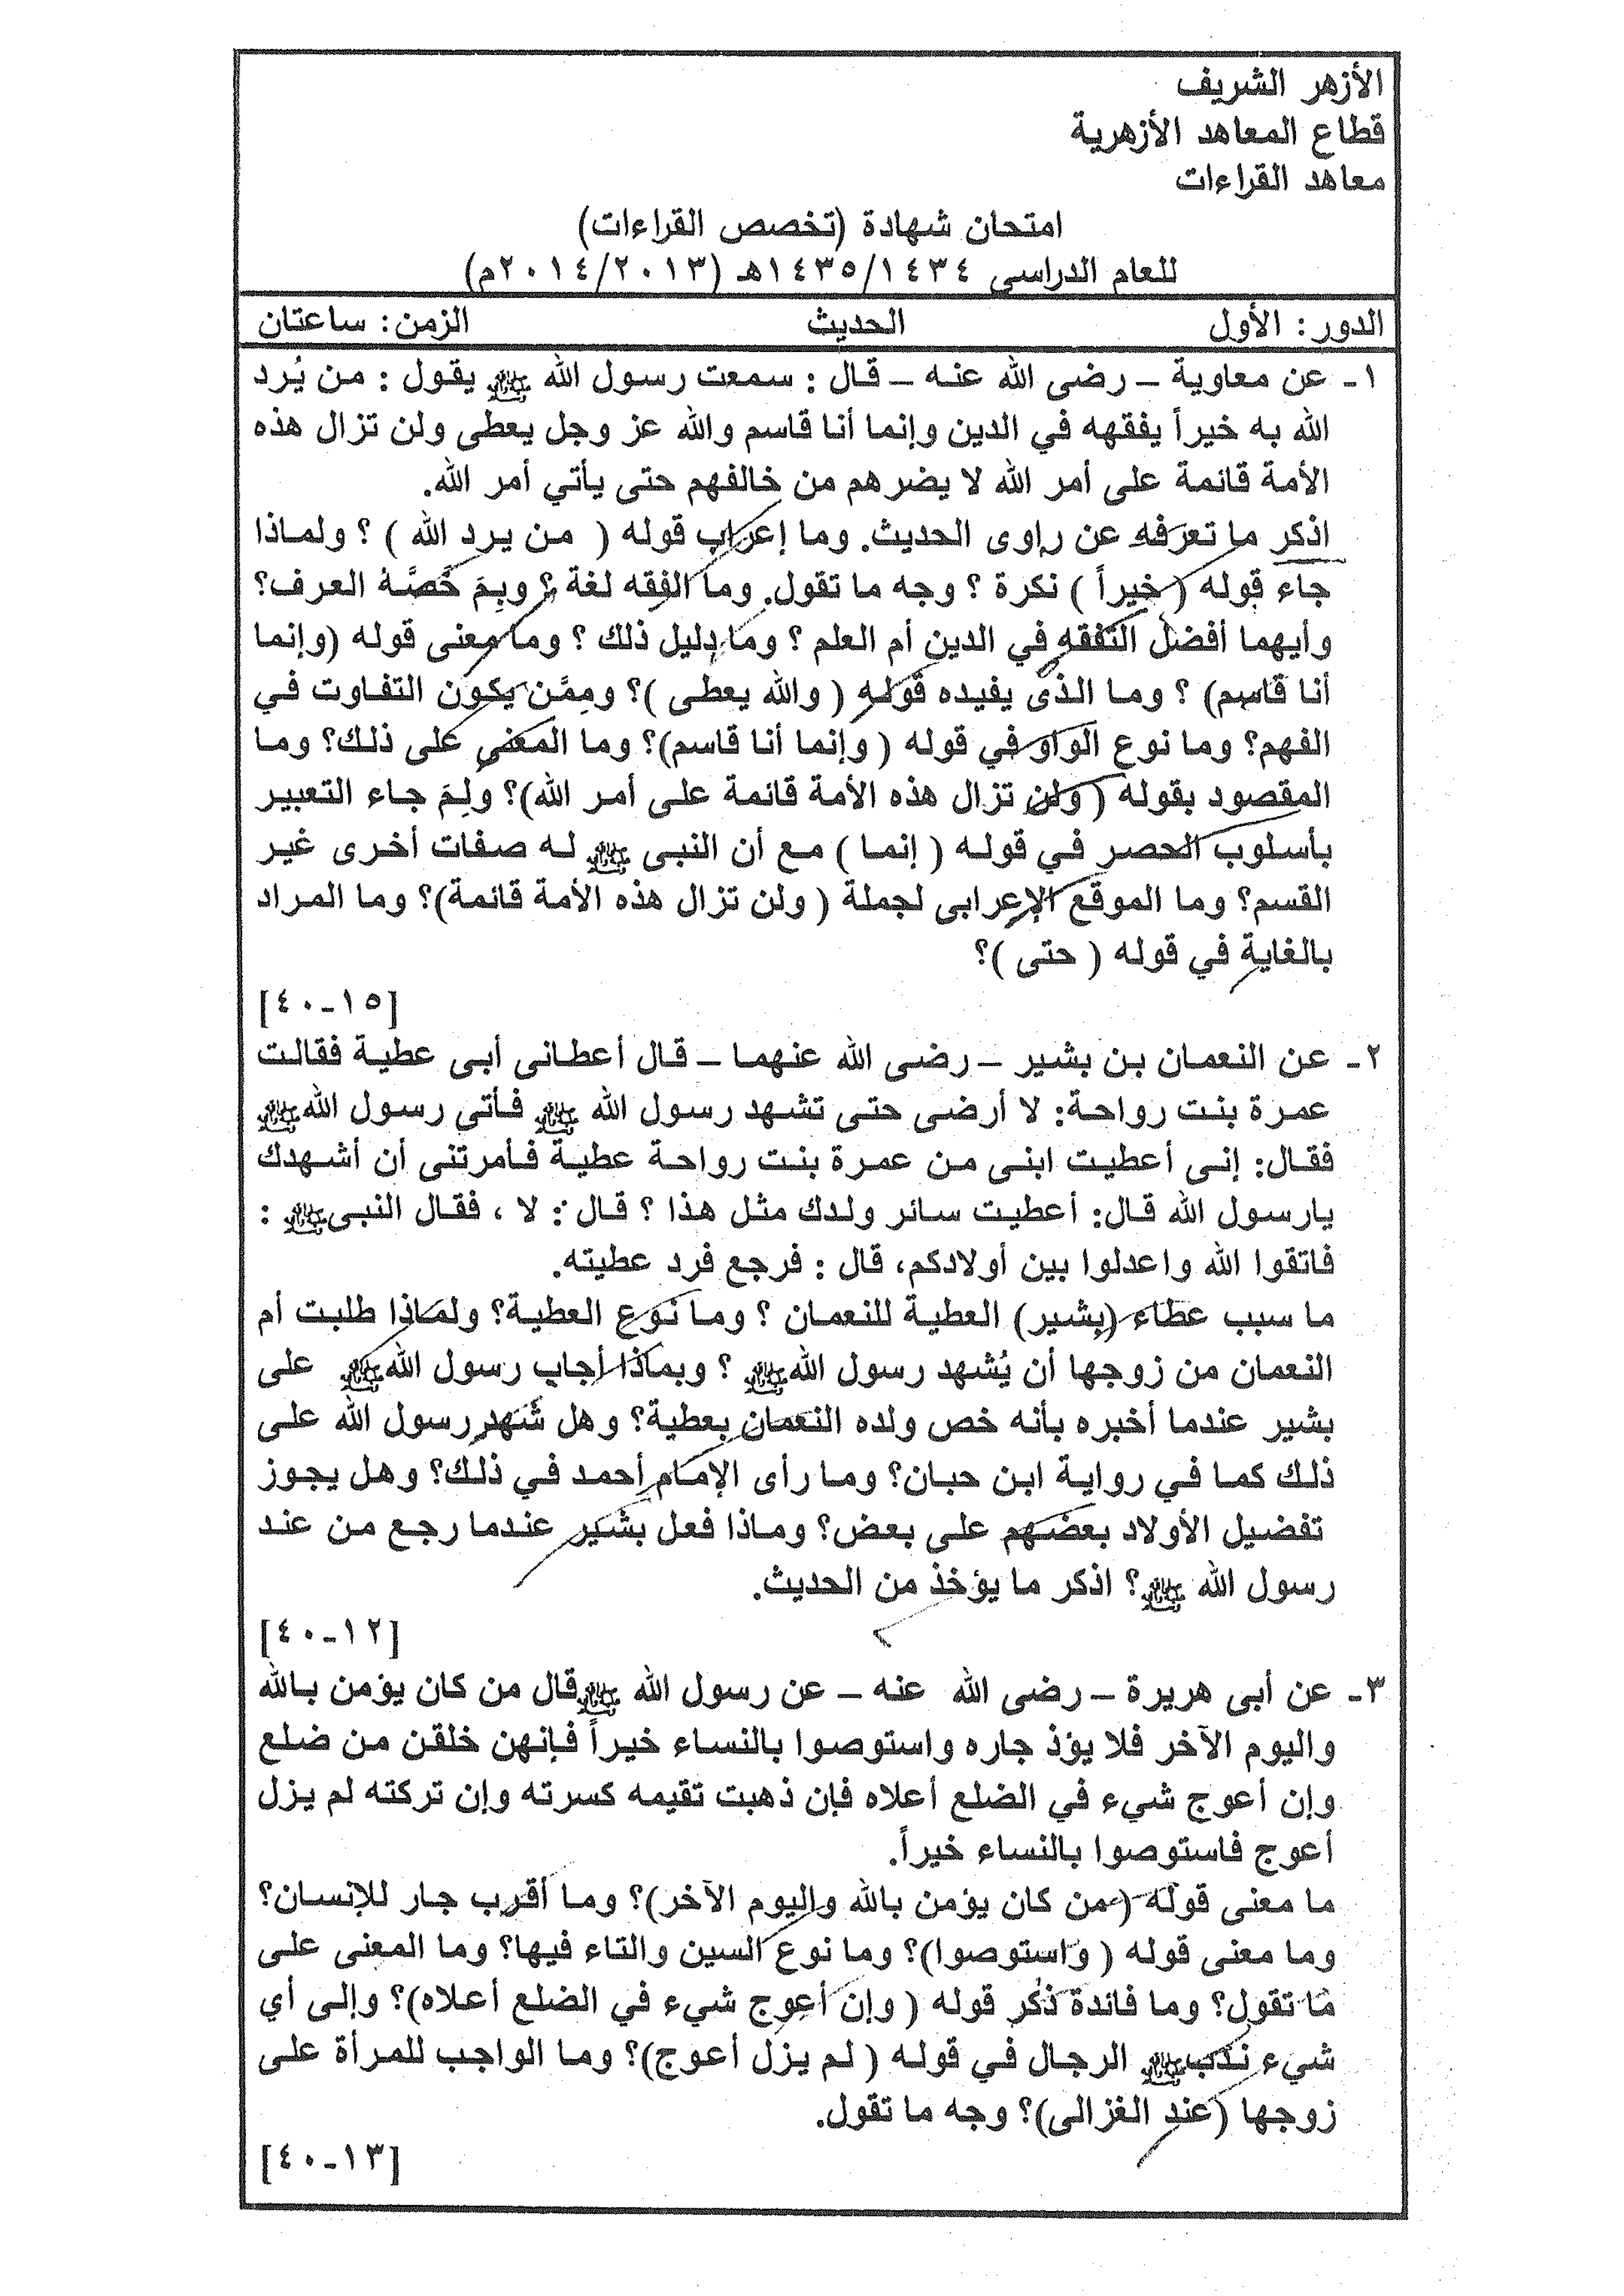 الأزهر الشريف
قطاع المعاهد الأزهرية
معاهد القراءات
امتحان شهادة (تخصص القراءات)
للعام الدراسى ١٤٣٥/١٤٣٤هـ (٢٠١٤/٢٠١٣م)
الدور: الأول الحديث الزمن: ساعتان
١- عن معاوية – رضى الله عنه – قال : سمعت رسول الله ﷺ يقول : من يُرد
الله به خيراً يفقهه في الدين وإنما أنا قاسم والله عز وجل يعطى ولن تزال هذه
الأمة قائمة على أمر الله لا يضرهم من خالفهم حتى يأتي أمر الله.
اذكر ما تعرفه عن راوى الحديث. وما إعراب قوله ( من يرد الله ) ؟ ولماذا
جاء قوله ( خيراً ) نكرة ؟ وجه ما تقول. وما الفقه لغة ؟ وبِمَ خَصَّهُ العرف؟
وأيهما أفضل التفقه في الدين أم العلم ؟ وما دليل ذلك ؟ وما معنى قوله (وإنما
أنا قاسم) ؟ وما الذى يفيده قوله ( والله يعطى )؟ ومِمَّن يكون التفاوت في
الفهم؟ وما نوع الواو في قوله ( وإنما أنا قاسم)؟ وما المعنى على ذلك؟ وما
المقصود بقوله ( ولن تزال هذه الأمة قائمة على أمر الله)؟ ولِمَ جاء التعبير
بأسلوب الحصر في قوله ( إنما ) مع أن النبى ﷺ له صفات أخرى غير
القسم؟ وما الموقع الإعرابى لجملة ( ولن تزال هذه الأمة قائمة)؟ وما المراد
بالغاية في قوله ( حتى )؟
[١٥-٤٠]
٢- عن النعمان بن بشير – رضى الله عنهما – قال أعطانى أبى عطية فقالت
عمرة بنت رواحة: لا أرضى حتى تشهد رسول الله ﷺ فأتى رسول الله ﷺ
فقال: إنى أعطيت ابنى من عمرة بنت رواحة عطية فأمرتنى أن أشهدك
يارسول الله قال: أعطيت سائر ولدك مثل هذا ؟ قال : لا ، فقال النبى ﷺ :
فاتقوا الله واعدلوا بين أولادكم، قال : فرجع فرد عطيته.
ما سبب عطاء (بشير) العطية للنعمان ؟ وما نوع العطية؟ ولماذا طلبت أم
النعمان من زوجها أن يُشهد رسول الله ﷺ ؟ وبماذا أجاب رسول الله ﷺ على
بشير عندما أخبره بأنه خص ولده النعمان بعطية؟ وهل شَهد رسول الله على
ذلك كما في رواية ابن حبان؟ وما رأى الإمام أحمد في ذلك؟ وهل يجوز
تفضيل الأولاد بعضهم على بعض؟ وماذا فعل بشير عندما رجع من عند
رسول الله ﷺ؟ اذكر ما يؤخذ من الحديث.
[١٢-٤٠]
٣- عن أبى هريرة – رضى الله عنه – عن رسول الله ﷺ قال من كان يؤمن بالله
واليوم الآخر فلا يؤذ جاره واستوصوا بالنساء خيراً فإنهن خلقن من ضلع
وإن أعوج شيء في الضلع أعلاه فإن ذهبت تقيمه كسرته وإن تركته لم يزل
أعوج فاستوصوا بالنساء خيراً.
ما معنى قوله (من كان يؤمن بالله واليوم الآخر)؟ وما أقرب جار للإنسان؟
وما معنى قوله ( واستوصوا)؟ وما نوع السين والتاء فيها؟ وما المعنى على
ما تقول؟ وما فائدة ذكر قوله ( وإن أعوج شيء في الضلع أعلاه)؟ وإلى أي
شيء ندب ﷺ الرجال في قوله ( لم يزل أعوج)؟ وما الواجب للمرأة على
زوجها (عند الغزالى)؟ وجه ما تقول.
[١٣-٤٠]